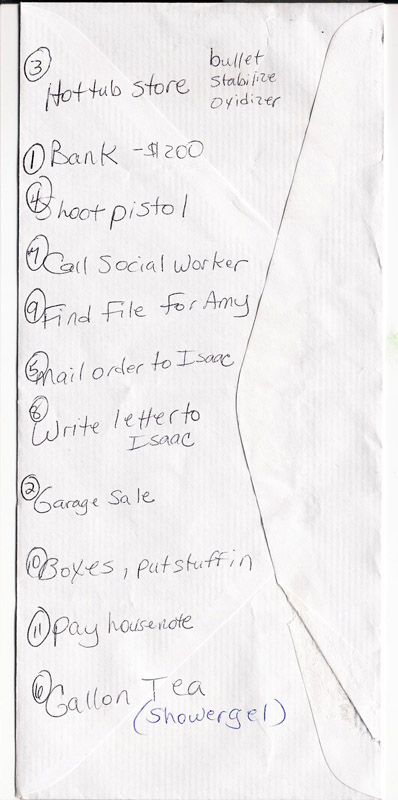 ③ Hot tub store
bullet
stabilize
oxidizer
① Bank -$200
④ Shoot pistol
⑦ Call Social Worker
⑨ Find File for Amy
⑤ mail order to Isaac
⑧ Write letter to
Isaac
② Garage Sale
⑩ Boxes, put stuff in
⑪ pay housenote
⑥ Gallon Tea
(showergel)